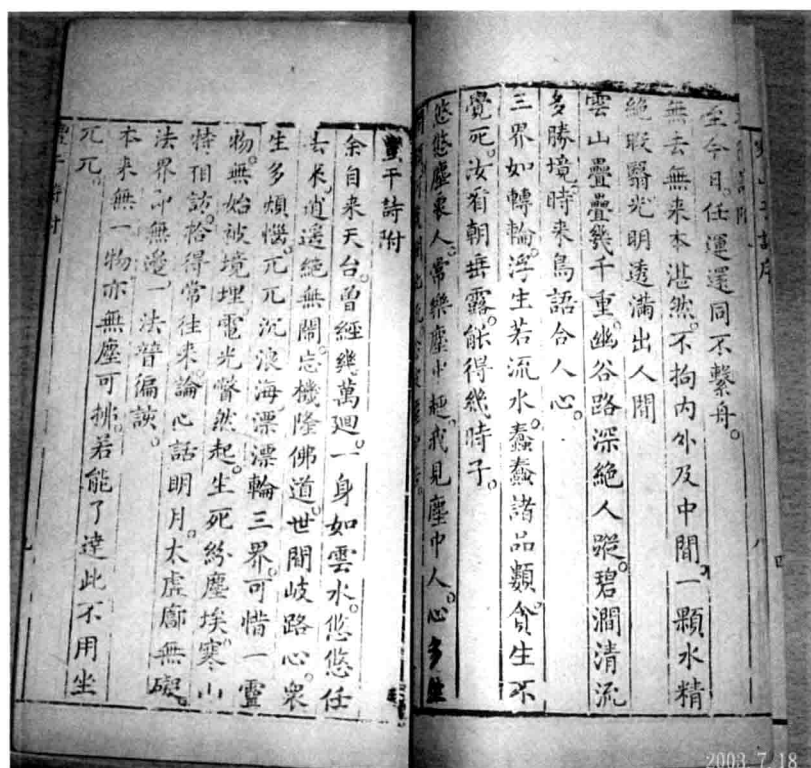 至今日。任運還同不繫舟。
無去無来本湛然。不拘内外及中間。一顆水精
絶瑕翳光明透滿出人間
雲山疊疊幾千重。幽谷路深絶人蹤。碧澗清流
多勝境。時来鳥語合人心。
三界如轉輪。浮生若流水。蠢蠢諸品類。貪生不
覺死。汝看朝垂露。能得幾時子。
悠悠塵裏人。常樂塵中趣。我見塵中人。心多
豐干詩附
余自来天台。曽經幾萬迴。一身如雲水。悠悠任
去来。逍遥絶無閙。忘機隆佛道。世間岐路心。衆
生多煩惱。兀兀沉浪海。漂漂輪三界。可惜一靈
物。無始被境埋。電光瞥然起。生死紛塵埃。寒山
特相訪。拾得常往来。論心話明月。太虚廓無礙。
法界即無邊。一法普徧該。
本来無一物。亦無塵可拂。若能了達此不用坐
兀兀。
2003 7 18